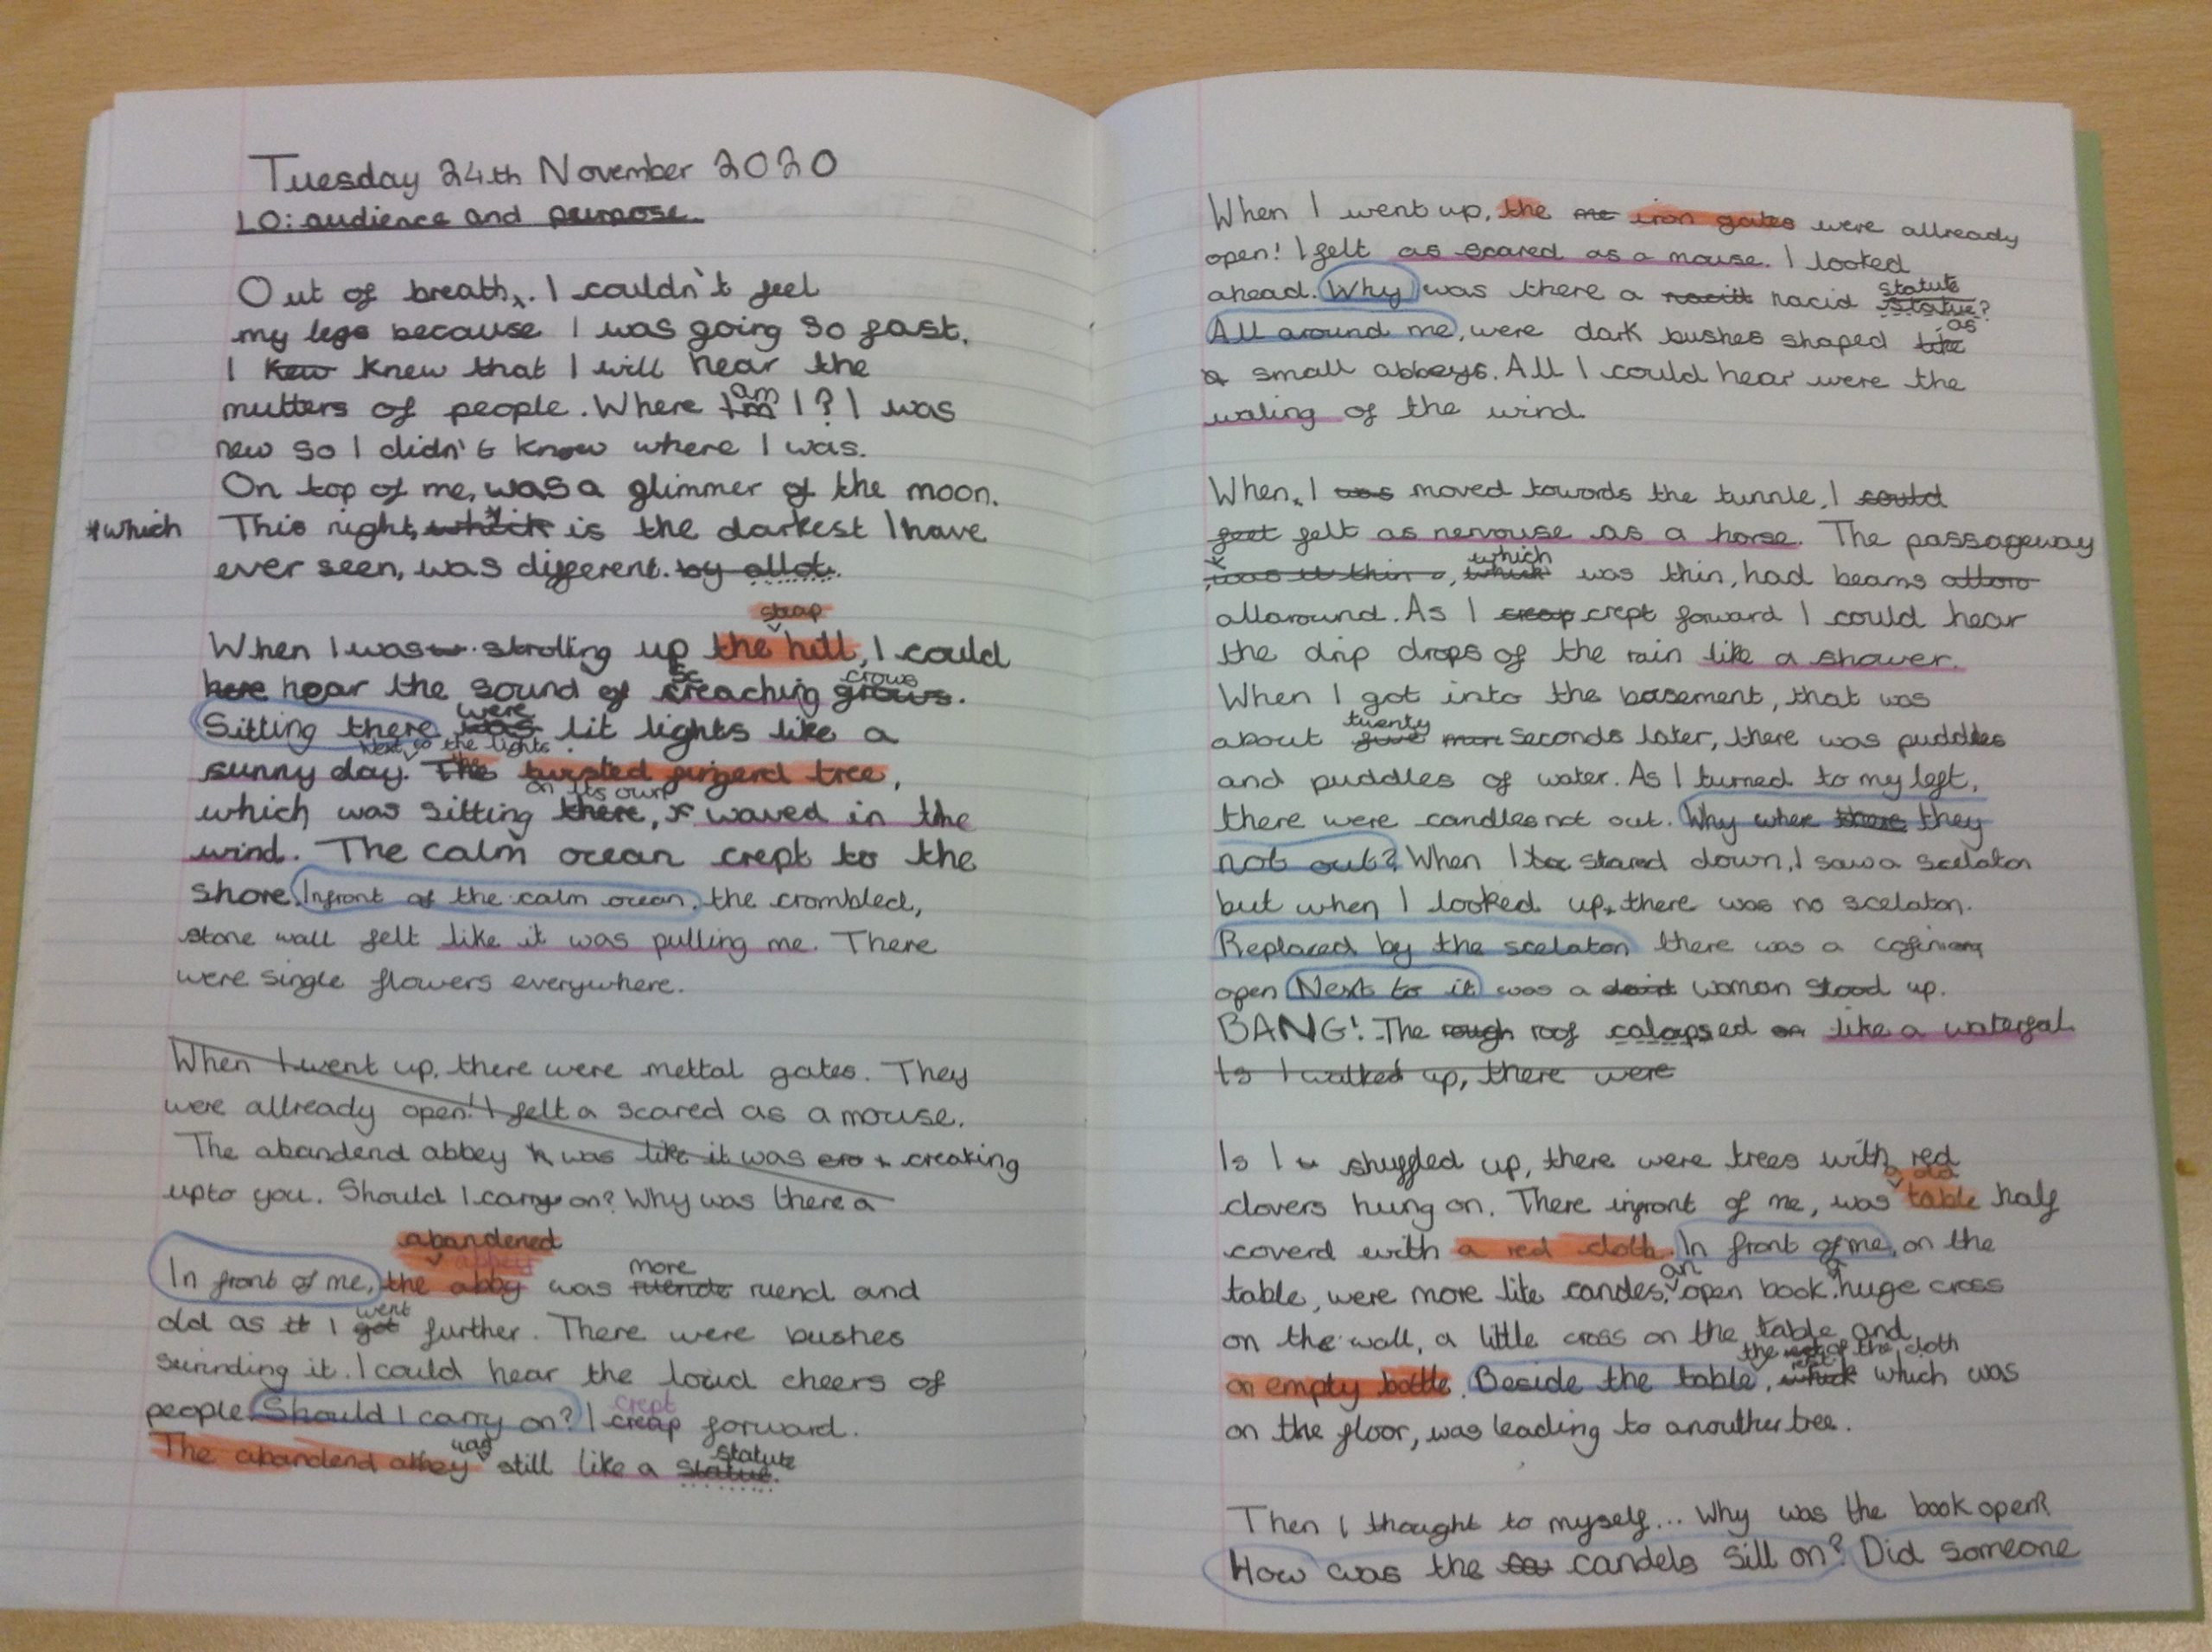 Tuesday 24th November 2020
LO: audience and purpose.
Out of breath, . I couldn't feel
my legs because I was going so fast.
I kew knew that I will hear the
mutters of people. Where am I ? I was
new so I didn't know where I was.
On top of me, was a glimmer of the moon.
*which This night, which is the darkest I have
ever seen, was different. by allot.
steap
When I was stroling up the hill, I could
here hear the sound of screaching crows grows.
Sitting there were was lit lights like a
Next to the lights
sunny day. The the twisted fingerd tree,
on its own
which was sitting there, waved in the
wind. The calm ocean crept to the
shore. Infront of the calm ocean, the crombled,
stone wall felt like it was pulling me. There
were single flowers everywhere.
When I went up, there were mettal gates. They
were allready open! I felt a scared as a mouse.
The abandend abbey was like it was creaking
upto you. Should I carry on? Why was there a
abandened
abbey
In front of me, the abby was more ruend and
old as it I went got further. There were bushes
surinding it. I could hear the loud cheers of
people. Should I carry on? I crept creap forward.
The abandend abbey was still like a statute statue.
When I went up, the me iron gates were allready
open! I felt as scared as a mouse. I looked
ahead. Why was there a nacid statute statue?
All around me, were dark bushes shaped as like
a small abbeys. All I could hear were the
waling of the wind.
When, I was moved towards the tunnle, I could
feet felt as nervouse as a horse. The passageway
was it thin, which which was thin, had beams
allaround. As I creap crept forward I could hear
the drip drops of the rain like a shower.
When I got into the basement, that was
about twenty five seconds later, there was puddles
and puddles of water. As I turned to my left,
there were candles not out. Why wher there they
not out? When I stared down, I saw a scelaton
but when I looked up, there was no scelaton.
Replaced by the scelaton there was a
open Next to it was a woman stood up.
BANG! The rough roof colapsed like a waterfal
Is I walked up, there were
Is I shuffled up, there were trees with red
a old
clovers hung on. There infront of me, was table half
coverd with a red cloth. In front of me, on the
table, were more lite candes, an open book, a huge cross
on the wall, a little cross on the table and
the rest of the cloth
an empty bottle. Beside the table, which which was
on the floor, was leading to anouther tree.
Then I thought to myself... Why was the book open?
How was the candels sill on? Did someone